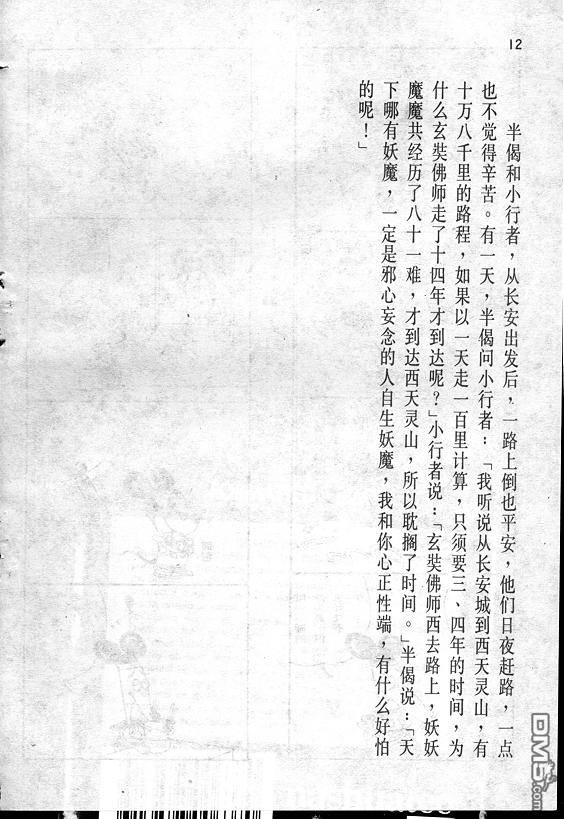 12
半偈和小行者，从长安出发后，一路上倒也平安，他们日夜赶路，一点
也不觉得辛苦。有一天，半偈问小行者：「我听说从长安城到西天灵山，有
十万八千里的路程，如果以一天走一百里计算，只须要三、四年的时间，为
什么玄奘佛师走了十四年才到达呢？」小行者说：「玄奘佛师西去路上，妖妖
魔魔共经历了八十一难，才到达西天灵山，所以耽搁了时间。」半偈说：「天
下哪有妖魔，一定是邪心妄念的人自生妖魔，我和你心正性端，有什么好怕
的呢！」
DM5.com